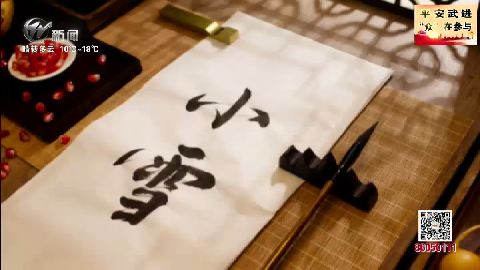 新闻
晴转多云 10℃~18℃
平安武进
“众”在参与
小
雪